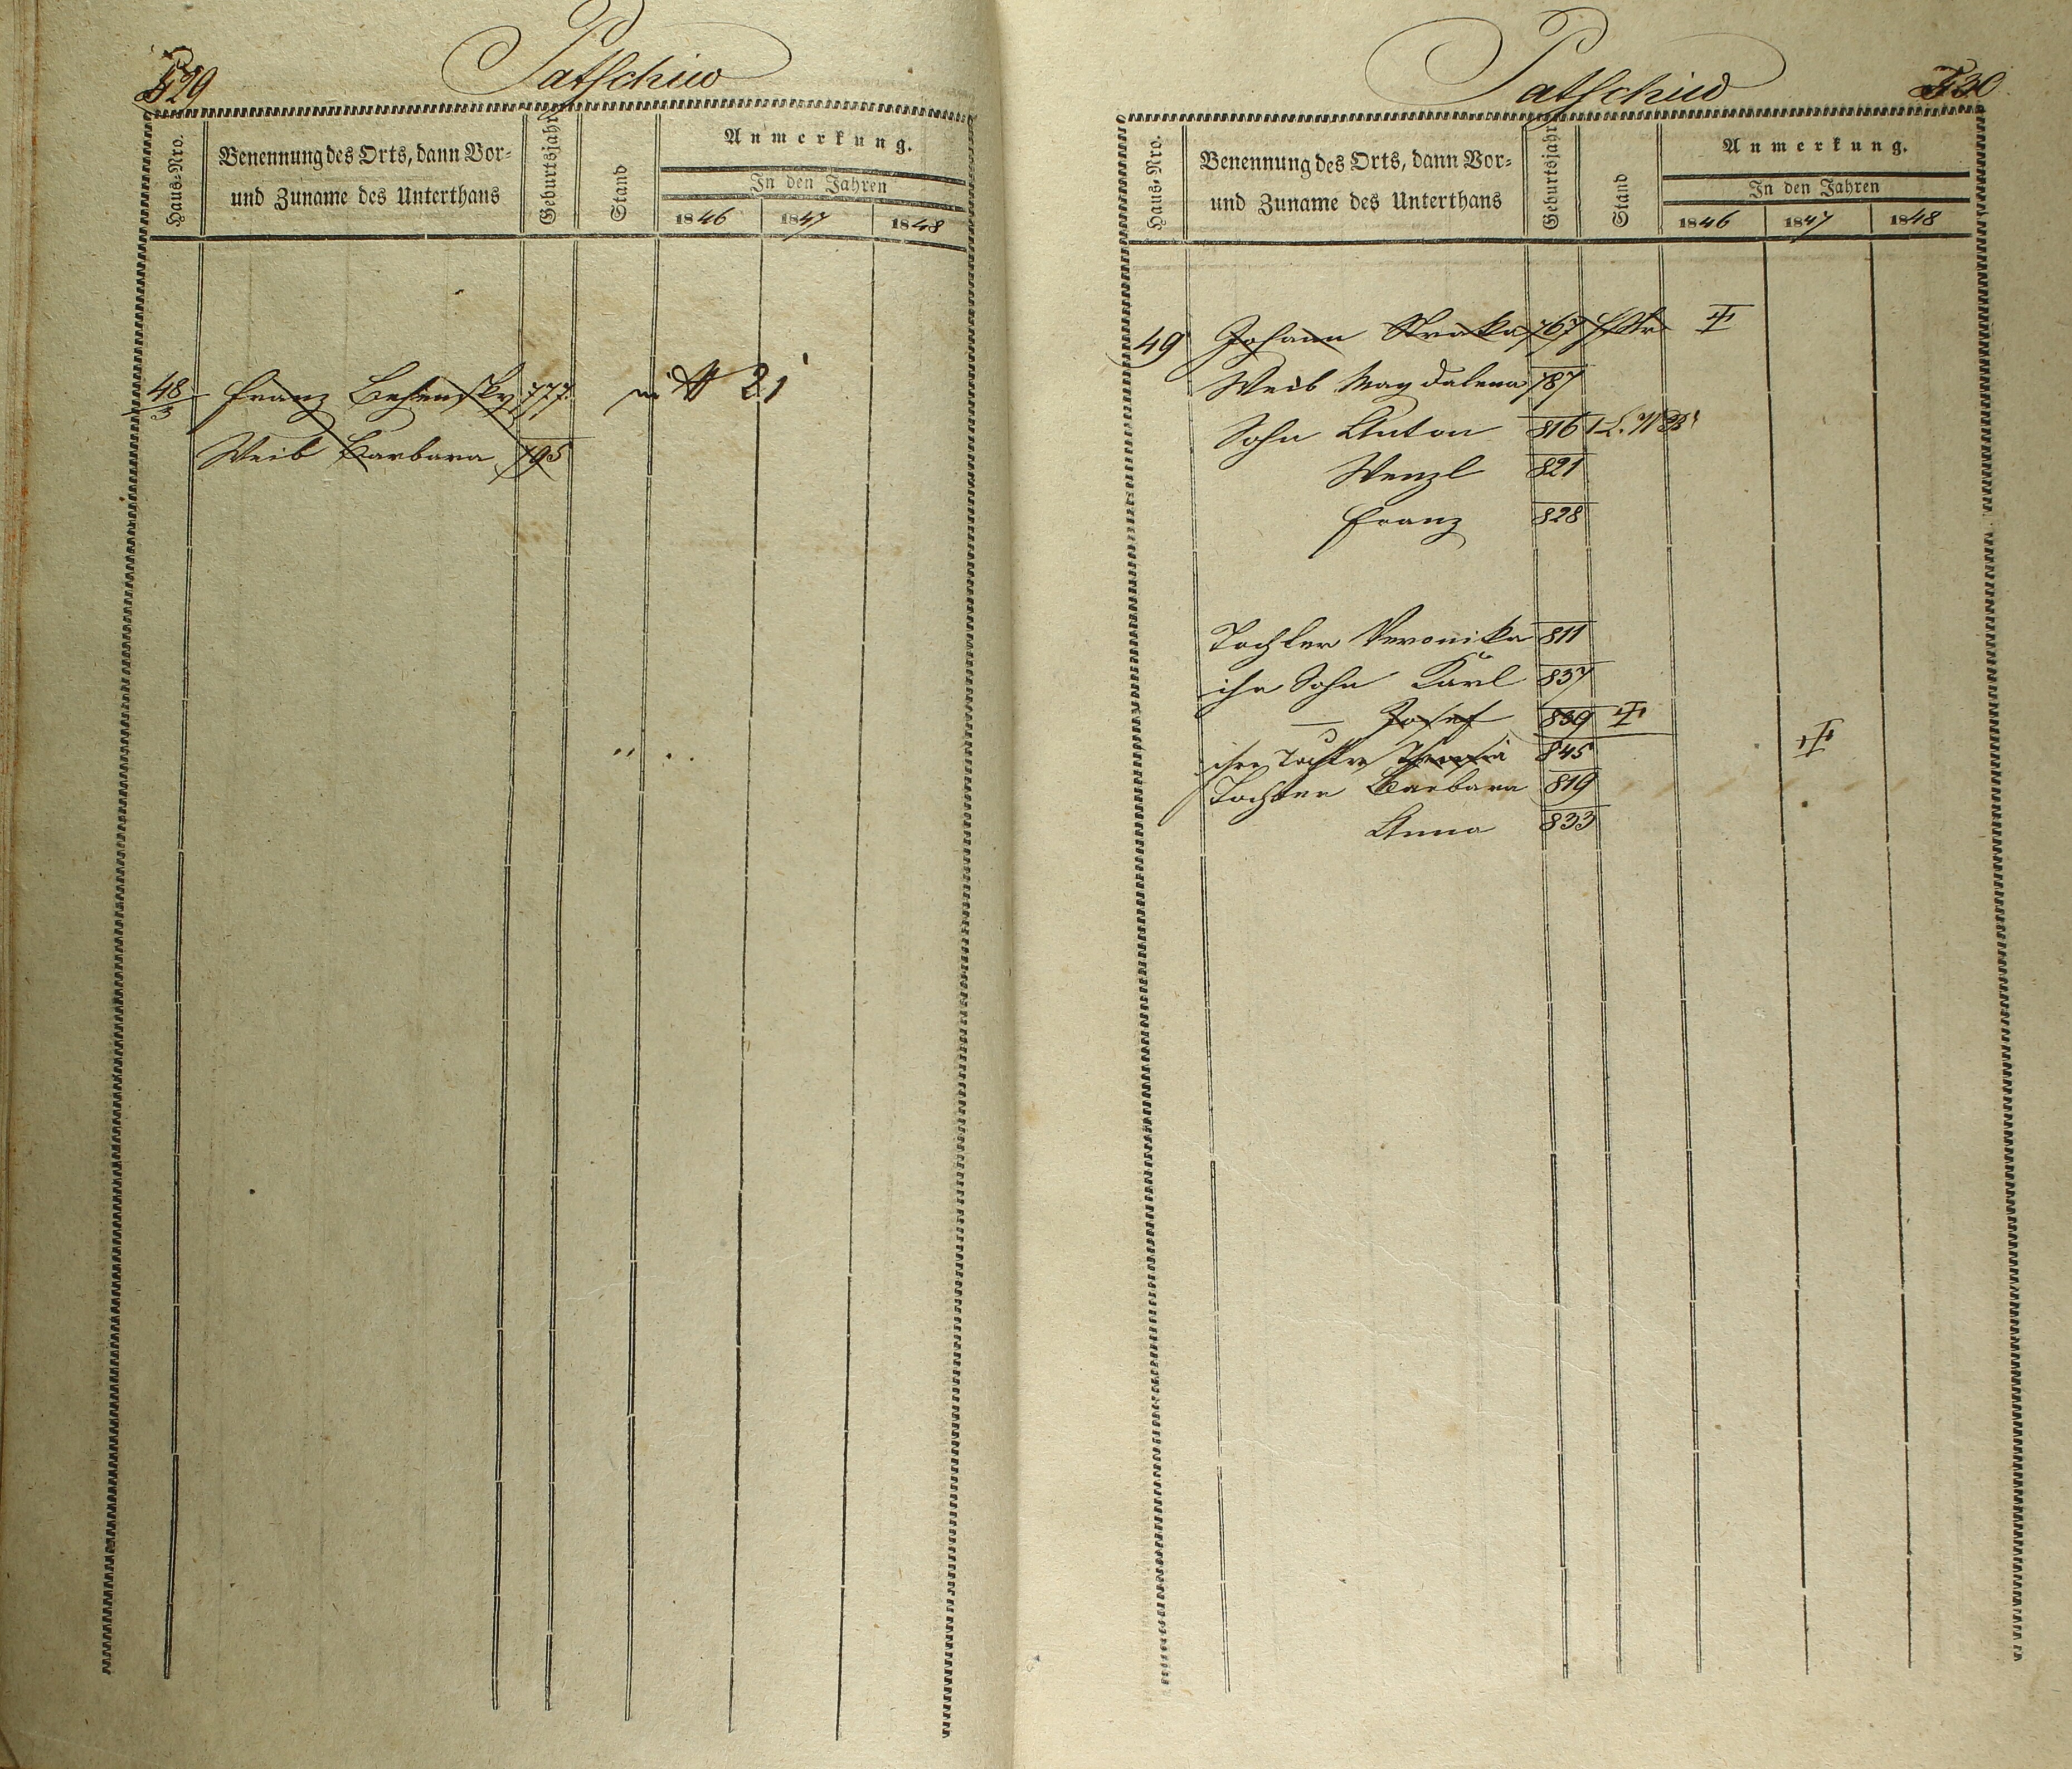 29
Patschiw
Haus-Nro.
Benennung des Orts, dann Vor-
und Zuname des Unterthans
Geburtsjahr
Stand
Anmerkung.
In den Jahren
1846 1847 1848
48/3 Franz 777 21
Weib Barbara 795
Patschiw
30
Haus-Nro.
Benennung des Orts, dann Vor-
und Zuname des Unterthans
Geburtsjahr
Stand
Anmerkung.
In den Jahren
1846 1847 1848
49 Johann Straka 767
Weib Magdalena 787
Sohn Anton 816
Wenzl 821
Franz 828
Tochter Veronika 811
ihr Sohn Karl 837
— Josef 839
ihre Tochter 845
Tochter Barbara 819
Anna 833